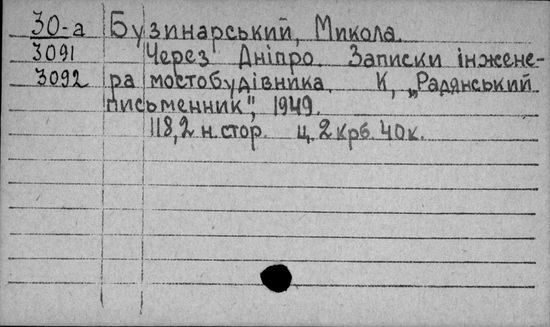 30-а Бузинарський, Микола.
3091 Через Дніпро. Записки інжене-
3092 ра мостобудівника. К, „Радянський
письменник", 1949.
118,2 н.стор. ц. 2 крб. 40 к.